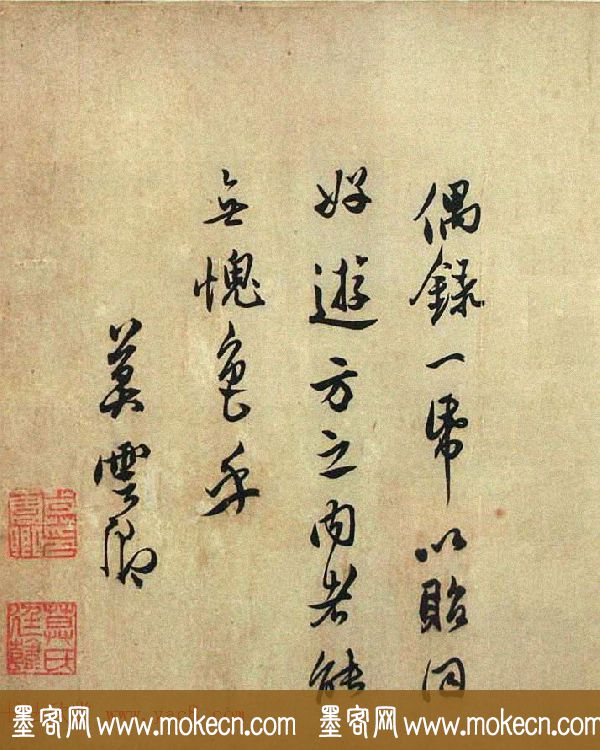 偶錄一帋以貽同
好遊方之内者能
無愧色乎
莫雲卿
墨客网 www.mokecn.com 墨客网 www.mokecn.com